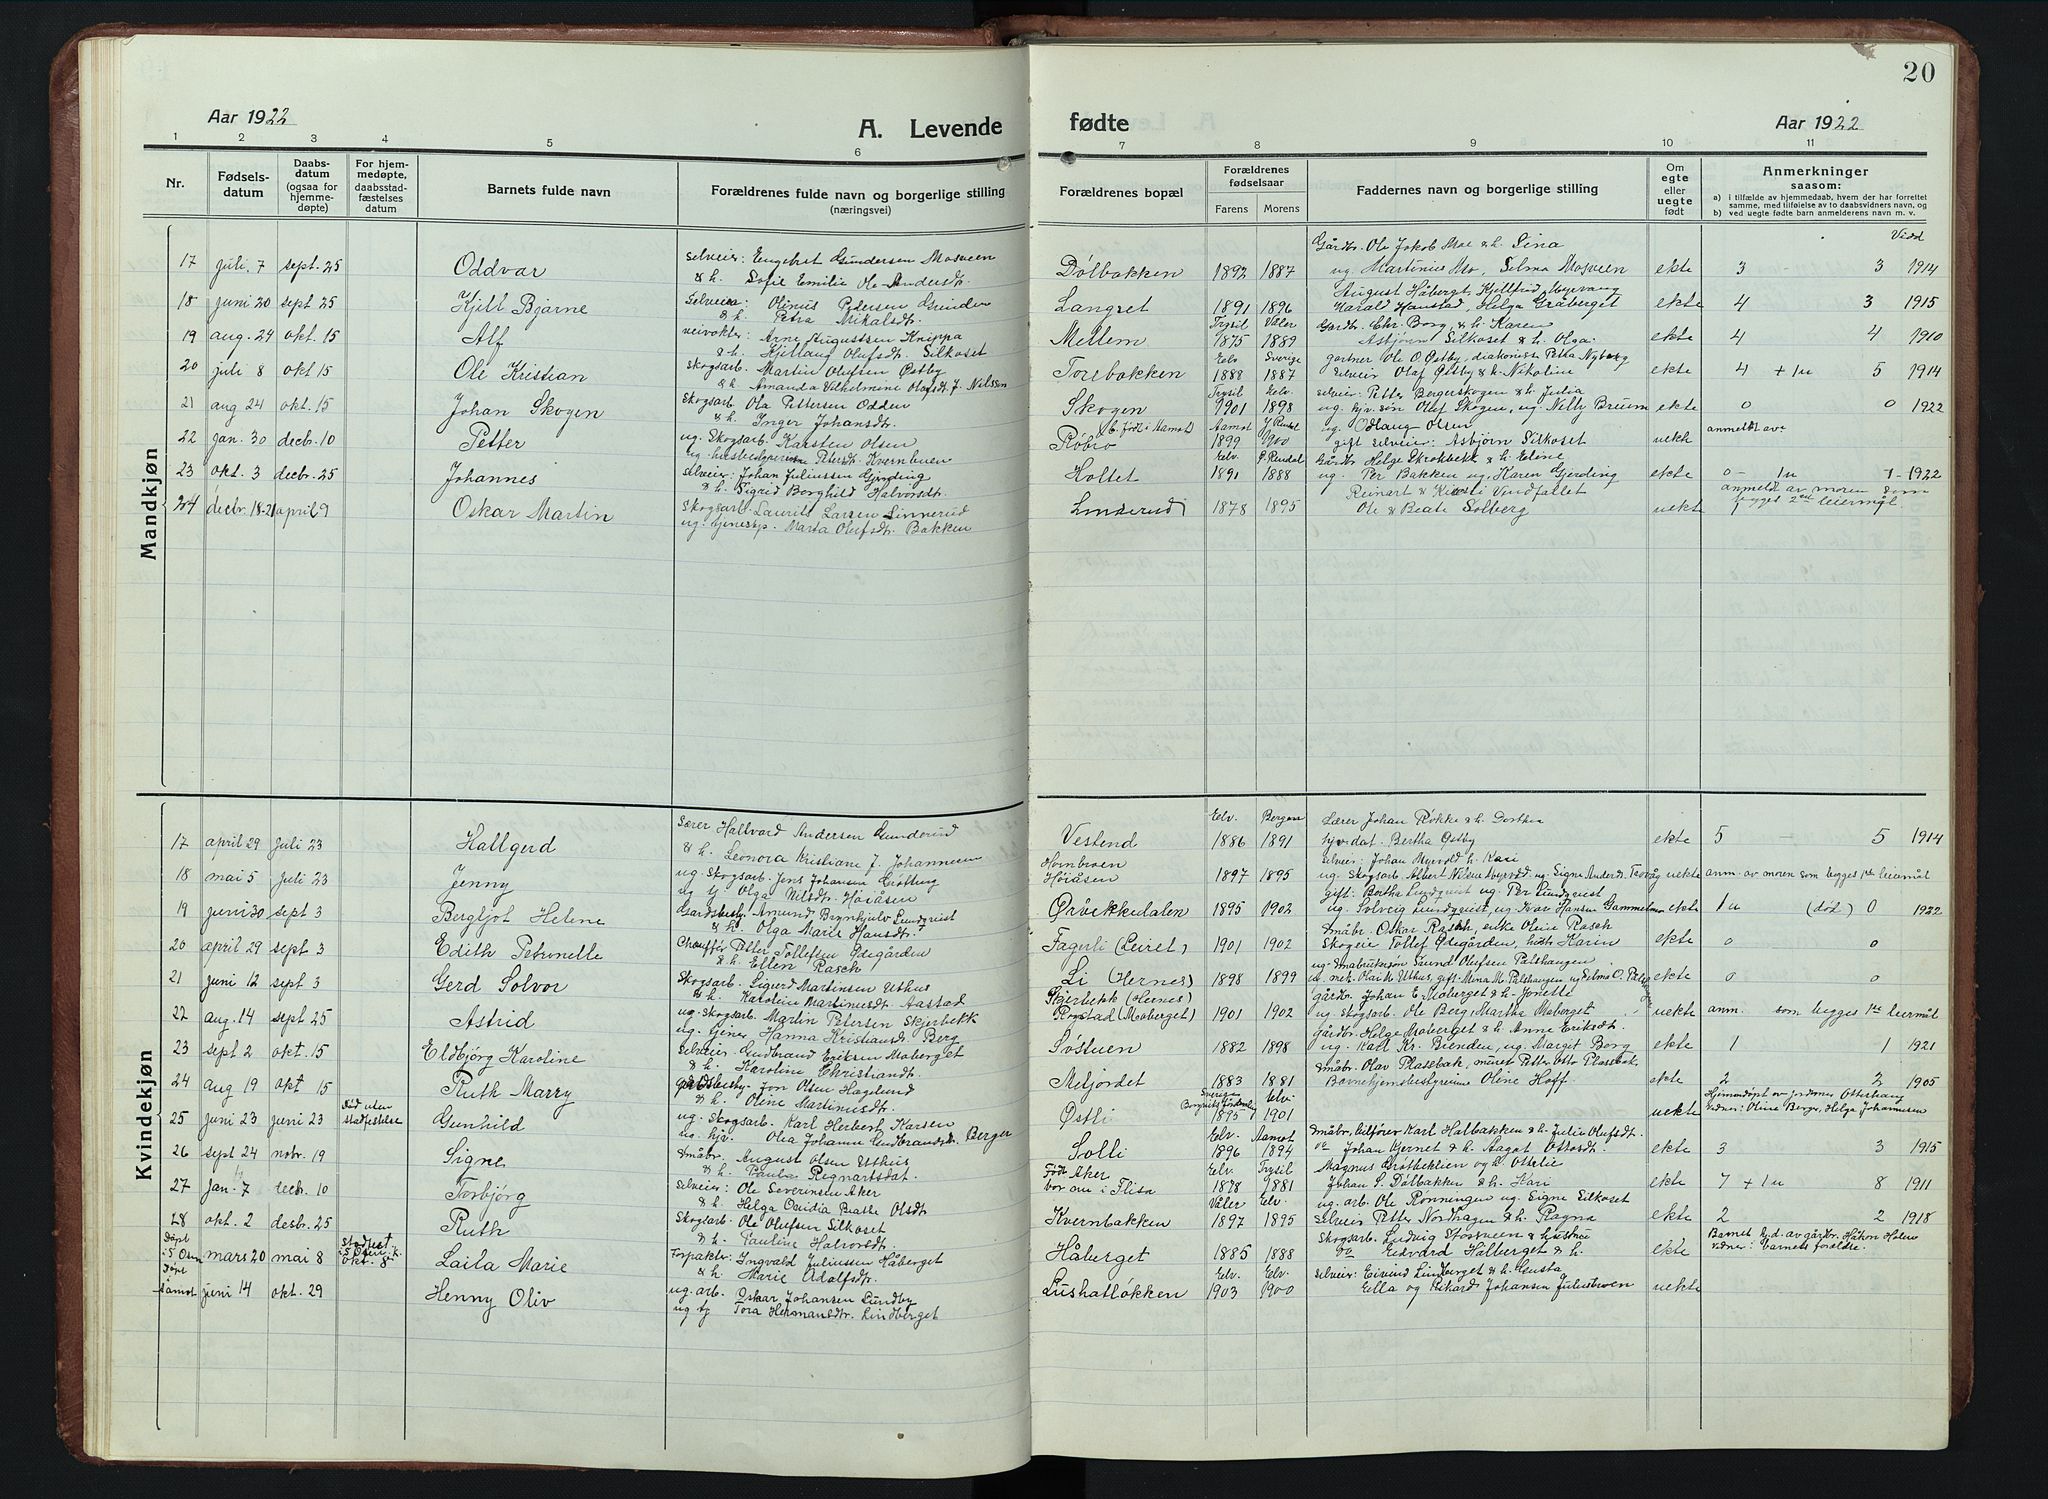 20
Aar 1922
A. Levende
fødte
Aar 1922
1 2 3 4 5 6 7 8 9 10 11
Nr.
Fødsels-
datum
Daabs-
datum
(ogsaa for
hjemme-
døpte)
For hjem-
medøpte,
daabsstad-
fæstelses
datum
Barnets fulde navn
Forældrenes fulde navn og borgerlige stilling
(næringsvei)
Forældrenes bopæl
Forældrenes
fødselsaar
Farens Morens
Faddernes navn og borgerlige stilling
Om
egte
eller
uegte
født
Anmerkninger
saasom:
a) i tilfælde av hjemmedaab, hvem der har forrettet
samme, med tilføielse av to daabsvidners navn, og
b) ved uegte fødte barn anmelderens navn m. v.
Mandkjøn
Vidd
Gårdbr. Ole Jakob Moe & h. Sina
17 juli 7 sept. 25 Oddvar selveier: Engebret Gundersen Mosveen Dølbakken 1892 1887 ug. Martinius Mo, Selma Mosveen ekte 3 3 1914
& h. Sofie Emilie Ole-Andersdt.
August Håberget, Kjellfrid Myrvang
18 juni 20 sept 25 Kjell Bjarne Selveier: Olinus Pedersen Grinden Langset 1891 1896 Harald Harstad, Helga Gråberget ekte 4 3 1915
& h. Petra Mikalsdt.
Trysil Våler Gårdbr. Chr. Borg & h. Karen
19 aug. 24 okt. 15 Alf veivokter: Arne Augustsen Knippa Mellem 1875 1889 Asbjørn Silkoset & h. Olga ekte 4 4 1910
& h. Kjellaug Olufsdt. Silkoset
Elv. Sverige gartner Ole O. Østby, diakonisse Petra Nyberg
20 juli 8 okt 15 Ole Kristian Skogsarb. Martin Olufsen Østby Torebakken 1888 1887 selveier Olaf Østby & h. Nikoline ekte 4 + 1u 5 1914
& h. Amanda Vilhelmine Olofsdt. f. Nilssen
Trysil Elv. selveier: Petter Bergerskogen & h. Julia
21 aug 24 okt. 15 Johan Skogen Skogsarb. Ola Pettersen Odden Skogen 1901 1898 ug. hjv. søn Olef Skogen, ug. Nilly Bruun ekte 0 0 1922
& h. Inger Johansdt.
b. født i Aamot Aamot Y. Rendal ug. Odlaug Olsen anmeldt av
22 jan. 30 decb. 10 Petter ug. Skogsarb. Karsten Olsen Røbro 1899 1900 gift selveier: Asbjørn Silkoset uekte
ug. husbestyrerinne Petersdt. Kvernbuen
Elv. Ø. Rendal Gårdbr. Helge Skrobekk & h. Eline
23 okt. 3 decbr. 25 Johannes selveier: Johan Juliussen Gjerding Holtet 1891 1888 ug. Per Bakken ug. Karen Gjerding ekte 0 – 1u 1 – 1922
& h. Sigrid Borghild Halvorsdt.
Reinart & Kirsti Vindfallet anmeldt av moren som
24 decbr. 18-21 april 9 Oskar Martin Skogsarb. Laurits Larsen Linnerud Linderud 1878 1895 Ole & Beate Solberg uekte begges 2net leiermål
ug. tjenesp. Marta Olufsdt. Bakken
Kvindekjøn
Elv. Bergen Lærer Johan Røkke & h. Dorthea
17 april 29 Juli 23 Hallgerd Lærer Hallvard Andersen Gunderud Vestend 1886 1891 hjv. dat. Bertha Østby ekte 5 – 5 1914
& h. Leonora Kristiane f. Johannesen
Hornbroen selveier: Johan Myrvold h. Kari
18 mai 5 Juli 23 Jenny ug. Skogsarb. Jens Johansen Grøtting Høiåsen 1897 1895 ug. Skogsarb. Albert Nilsen Myrvold, ug. Signe uekte anm. av moren som begges 1ste leiermål
ug. tj. Olga Nilsdt. Høiåsen
gift: Bertha Lundqvist ug. Per Lundqvist
19 juni 30 sept 3 Bergljot Helene Gardsbesty. Amund Brynhjulv Lundqvist Ørbekkedalen 1895 1902 ug. Solveig Lundqvist, ug. Ivar Hansen Gammelmo ekte 1u (død) 0 1922
& h. Olga Marie Hansdt.
småbr. Oskar Rasch, enke Oline Rasch
20 april 29 sept 3 Edith Petrunelle Chauffør Petter Tollefsen Ødegården Fagerli (Leiret) 1901 1902 Skogeie Tollef Ødegården, hstr. Karin ekte 0 0
& h. Ellen Rasch
21 juni 12 sept 3 Gerd Solvor Skogsarb. Sigurd Martinsen Uthus Li (Hernes) 1898 1899 ekte 0 0
& h. Karoline Martinusdt. Aastad
Skjerbekk (Hernes) gårdbr. Johan E. Maberget & h. Jonette
22 aug. 14 sept 25 Astrid ug. Skogsarb. Martin Petersen Skjerbekk Rogstad (Moberget) 1901 1902 ug. Skogsarb. Ole Berg, Martha Moberget uekte anm. som begges 1ste leiermål
ug. tjener Hanna Kristiansdt. Berg
gårdbr. Helge Moberget & h. Anne Eriksdt.
23 sept 2 okt. 15 Eldbjørg Karoline selveier: Gudbrand Eriksen Moberget Søstuen 1882 1898 ug. Karl Kr. Bienden, ug. Margit Borg ekte 1 1 1921
& h. Karoline Christiansdt.
småbr. Olav Plassebak, murer Petter Otto Plassebak
24 aug 19 okt 15 Ruth Marry gårdsbesty. Jon Olsen Haglund Meljordet 1883 1881 Barnehjemsbestyrerinne Oline Hoff ekte 2 2 1905
& h. Oline Martinusdt.
Død uten stadfestelse Sverige Elv. Hjemmedøpt av jordmor Otterhaug
25 juni 23 juni 23 Gunhild ug. Skogsarb. Karl Herbert Karsen Østli 1895 1901 uekte vidner: Oline Berger, Helga Johannesen
ug. hjv. Olea Johanne Gudbrandsdt. Berger
Elv. Aamot småbr. Karl Halbakken & h. Julie Olufsdt.
26 sept 24 nobr. 19 Signe småbr. August Olsen Utthus Solli 1896 1894 Johan Kjernet & h. Aagot Ottosdt. ekte 3 3 1915
& h. Paula Regnartsdat.
Født Aker Elv. Trysil Magnus Grøtbeklien og h. Ottilie
27 Jan. 7 decb. 10 Torbjørg selveier: Ole Severinsen Aker bor nu i Flisa 1878 1881 Johan S. Dølbakken & h. Kari ekte 7 + 1u 8 1911
& h. Helga Ovidia Beathe Olsdt.
Våler Elv. ug. arb. Ole Rønningen ug. Signe Silkoset
28 okt. 2 desbr. 25 Ruth Skogsarb. Ole Olufsen Silkoset Kvernbakken 1897 1895 selveier Petter Nordhagen & h. Ragna ekte 2 2 1918
& h. Pauline Halvorsdt.
Døpt i S. Osen Skogsarb. Ludvig Støsveen & hustrue
mars 20 mai 8 Laila Marie Forpakter: Ingvald Juliussen Håberget Håberget 1885 1888 Edvard Halberget & h. ekte vidner: barnets foreldre.
& h. Marie Adolfsdt.
Døpt Åmot Elv. Elv. selveier: Eivind Lindberget & h. Gusta
juni 14 okt. 29 Henny Oliv ug. arb. Oskar Johansen Lundby Lushatløkken 1903 1900 Ella og Rikard Johansen Julusmoen uekte
ug. tj. Tora Hermansdtr. Lindberget